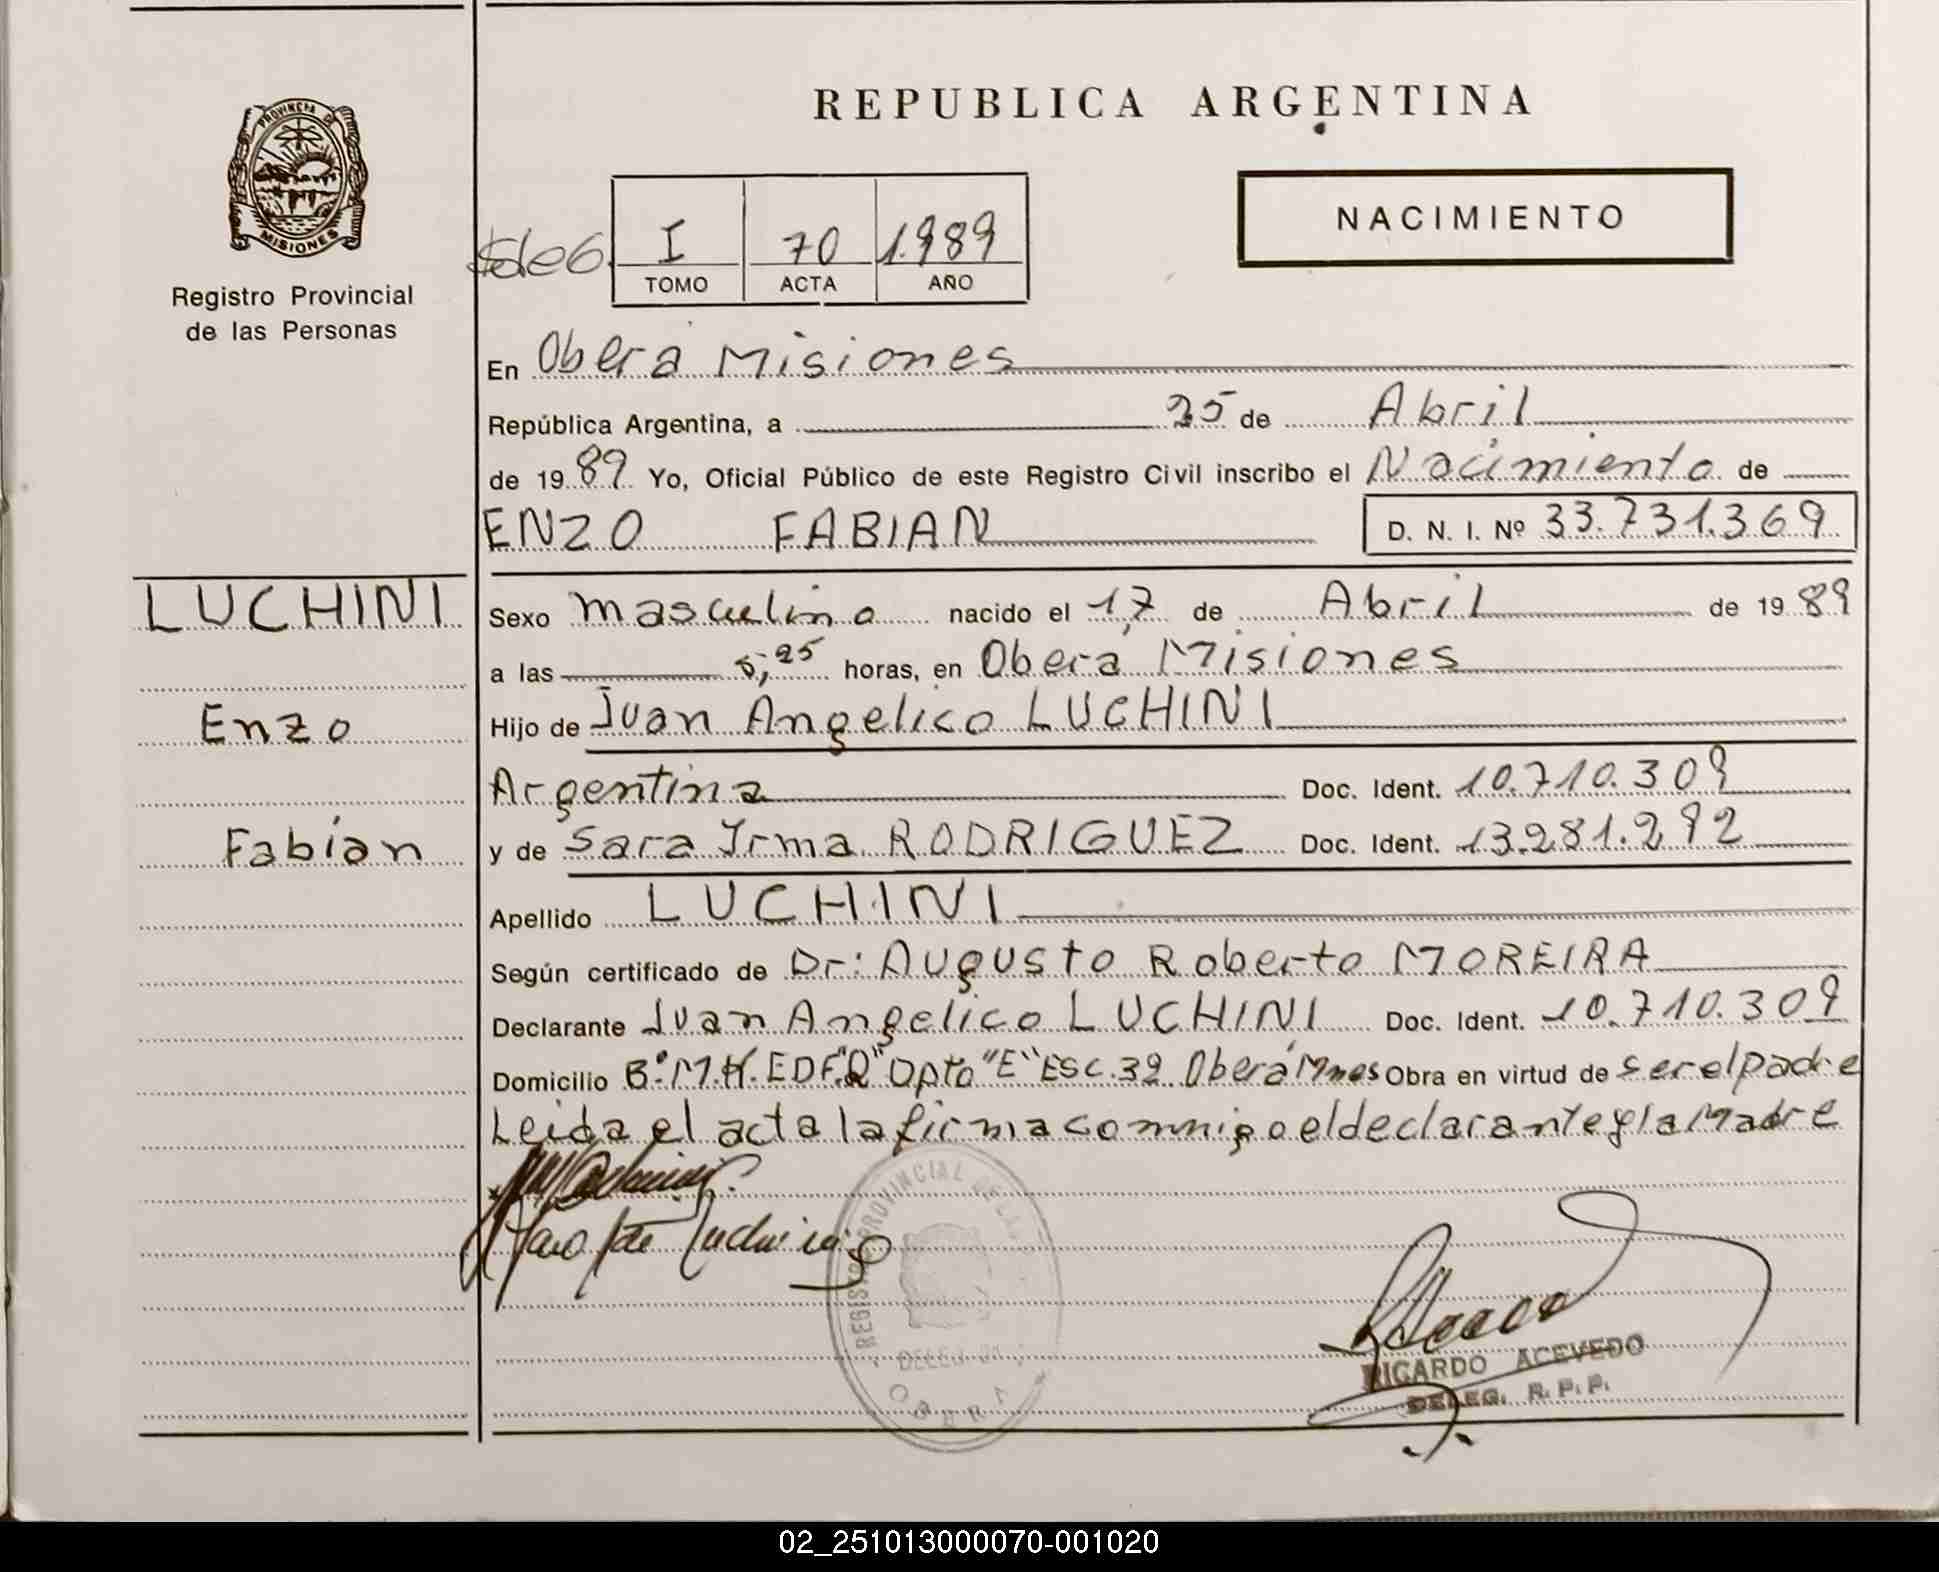 REPUBLICA ARGENTINA
PROVINCIA DE
MISIONES
Registro Provincial
de las Personas
NACIMIENTO
I 70 1.989
TOMO ACTA AÑO
En Oberá Misiones
República Argentina, a 25 de Abril
de 19 89 Yo, Oficial Público de este Registro Civil inscribo el Nacimiento de
ENZO FABIAN D. N. I. Nº 33.731.369
LUCHINI
Enzo
Fabian
Sexo masculino nacido el 17 de Abril de 19 89
a las 5,25 horas, en Oberá Misiones
Hijo de Juan Angelico LUCHINI
Argentina Doc. Ident. 10.710.309
y de Sara Irma RODRIGUEZ Doc. Ident. 13.281.292
Apellido LUCHINI
Según certificado de Dr: Augusto Roberto MOREIRA
Declarante Juan Angelico LUCHINI Doc. Ident. 10.710.309
Domicilio Bº M.K. EDF. "Q" Dpto "E" ESC. 39 Oberá Mnes Obra en virtud de ser el padre
Leida el acta la firma conmigo el declarante y la Madre
REGISTRO PROVINCIAL DE LAS
DELEG.
OBERA
RICARDO ACEVEDO
DELEG. R. P. P.
02_251013000070-001020